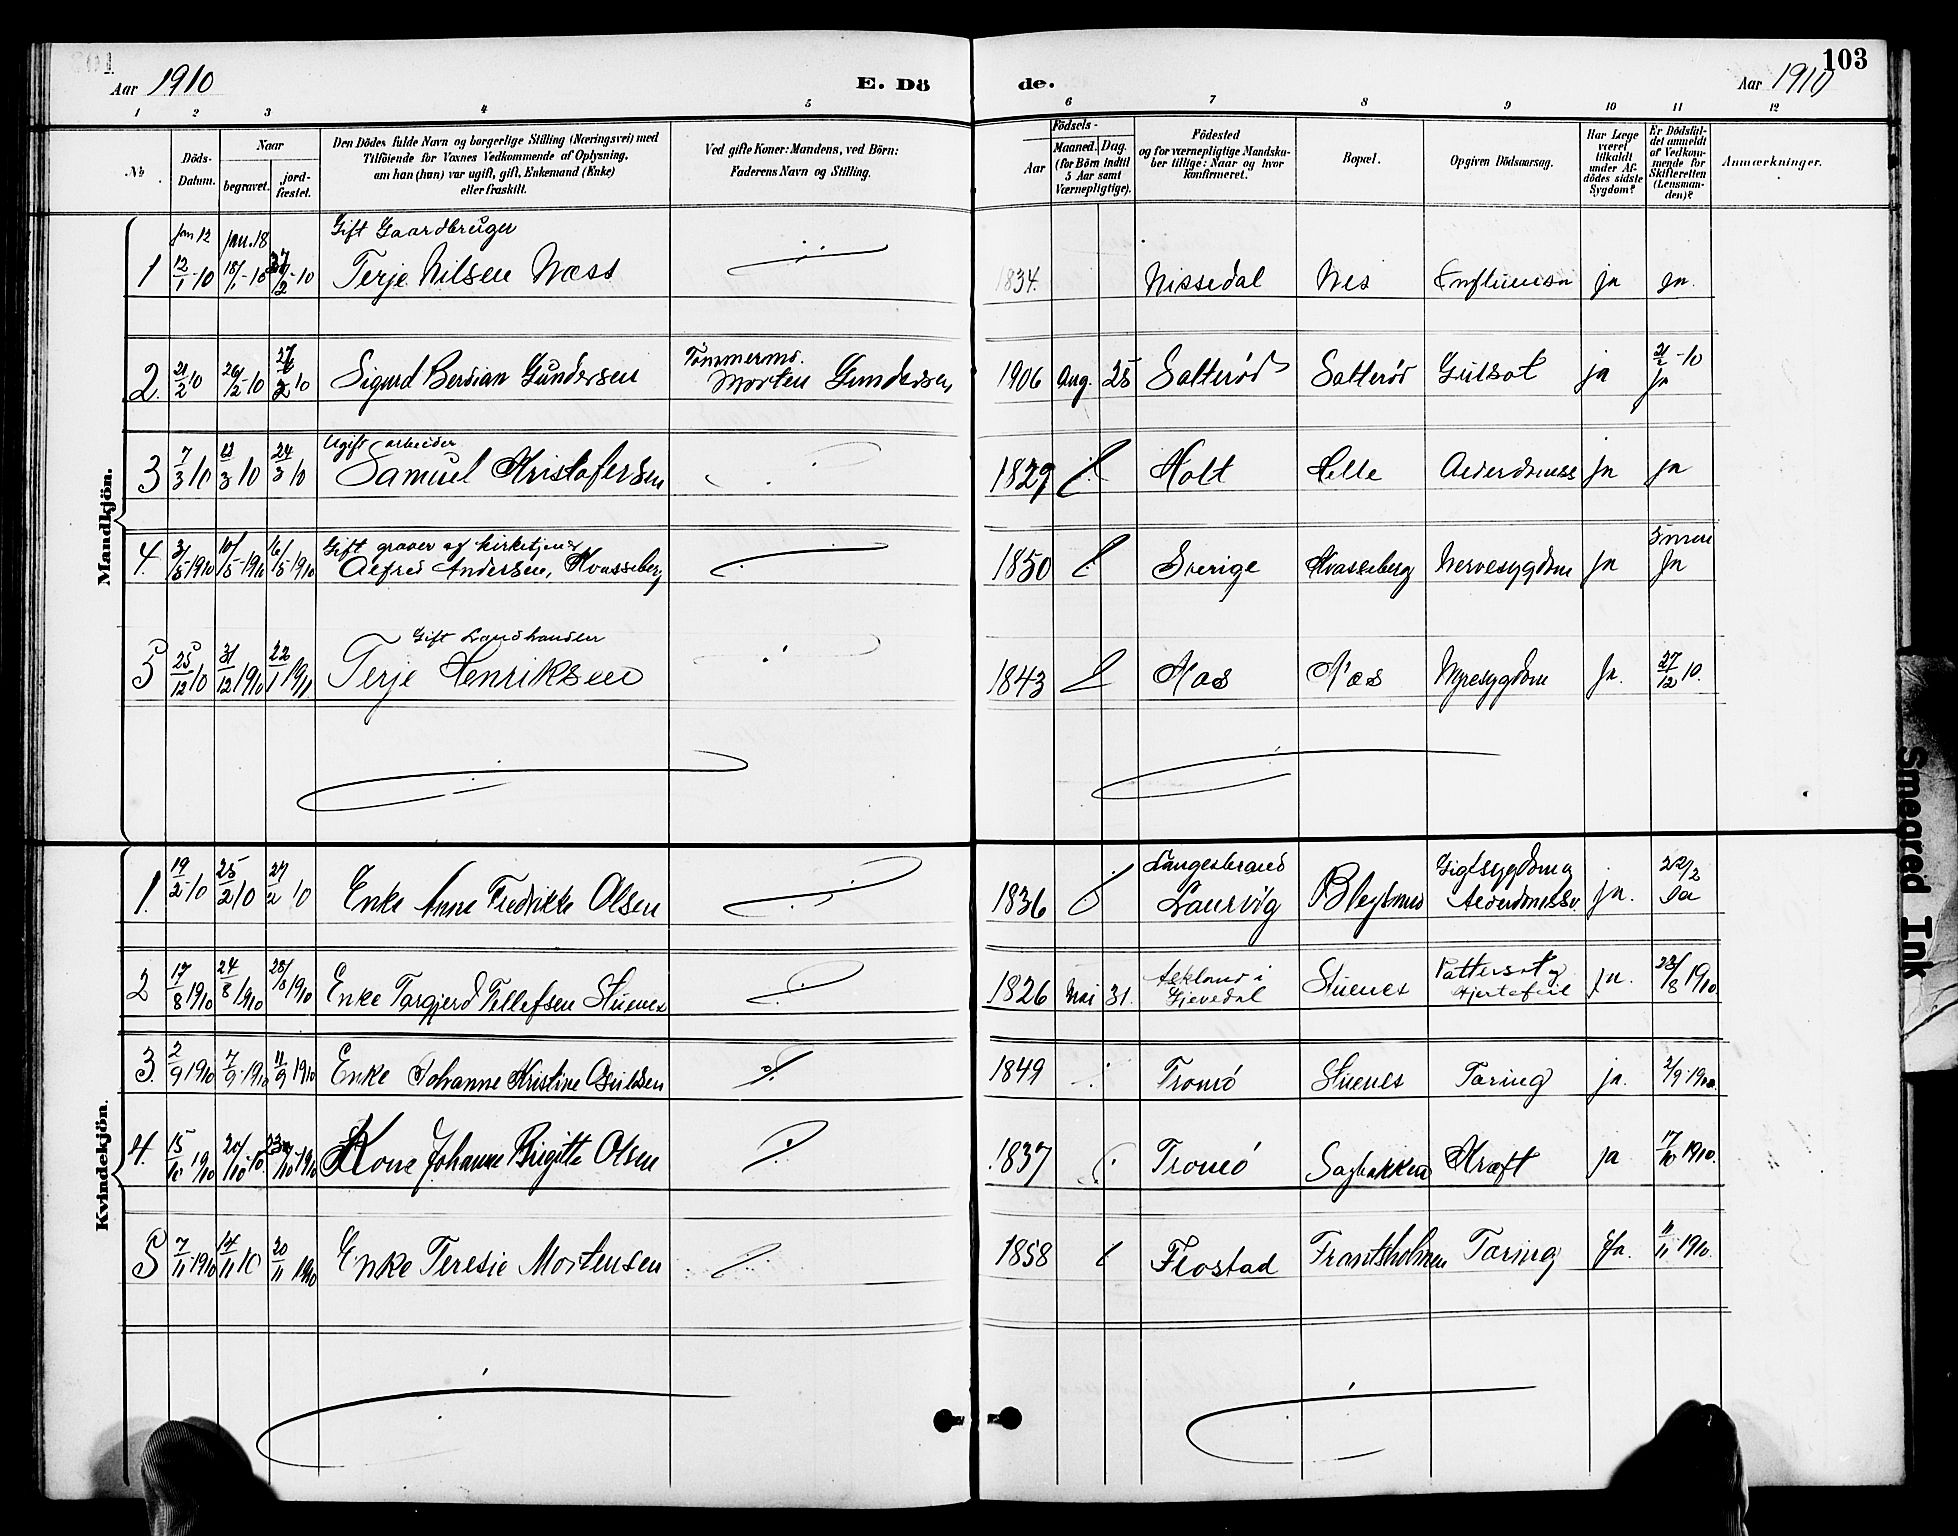 103
Aar 1910
E. Dö
de.
Aar 1910
1 2 3 4 5 6 7 8 9 10 11 12
No. Döds-Datum. Naar begravet. jord-fæstet. Den Dödes fulde Navn og borgerlige Stilling (Næringsvei) med Tilföiende for Voxnes Vedkommende af Oplysning, om han (hun) var ugift, gift, Enkemand (Enke) eller fraskilt. Ved gifte Koner: Mandens, ved Börn: Faderens Navn og Stilling. Födsels- Aar Maaned. Dag. (for Börn indtil 5 Aar samt Værnepligtige). Födested og for værnepligtige Mandska-ber tillige: Naar og hvor konfirmeret. Bopæl. Opgiven Dödsaarsag. Har Læge været tilkaldt under Af-dödes sidste Sygdom? Er Dödsfal-det anmeldt af Vedkom-mende for Skifteretten (Lensman-den)? Anmærkninger.
Mandkjön.
Jan 12 Jan. 18 Gift Gaardbruger
1 12/1-10 18/1-10 27/2-10 Terje Nilsen Næss 1834. Nissedal Nes Influensa ja ja.
2. 21/2 10 26/2-10 27/2 10 Sigurd Bersian Gundersen Tömmermd. Morten Gundersen 1906 Aug. 25 Salteröd Salteröd Gulsot ja 21/2-10 ja
Ugift arbeider
3 7/3 10 12/3 10 24/3 10 Samuel Kristofersen 1829 Holt Helle Alderdomss ja ja
Gift graver og kirketjener
4. 3/5 1910 10/5-1910 16/5 1910 Alfred Andersen, Kvasseberg 1850 Sverige Kvasseberg Nervesygdom ja ja
Gift Landhandler
5 25/12 10 31/12 1910 22/1 1911 Terje Henriksen 1843 Næs Næs Nyresygdom Ja. 27/12 10.
Kvindekjön.
1. 19/2-10 25/2 10 27/2 10 Enke Anne Fredrikke Olsen 1836 Langestrand Laurvig Gigtsygdom og Alderdomssv. ja. 22/2 Da
2 17/8 1910 24/8 1910 28/8 1910 Enke Torgjerd Tellefsen Stuenes 1826 Mai 31. Askland i Gjevedal Stuenes Vattersot og Hjertefeil ja. 23/8 1910
3. 2/9 1910 7/9-1910 11/9 1910 Enke Johanne Kristine Osuldsen 1849 Tromö Stuenes Tæring ja. 2/9-1910.
4. 15/10 1910 20/10-10. 1910 Kone Johanne Birgitte Olsen 1837 Tromö Sagbakken Kræft ja 17/10 1910.
5 7/11-1910 14/11 10 20/11 1910 Enke Teresie Mortensen 1858 Flostad Frantsholmen Tæring Ja. 11/11 1910.
Smeared Ink